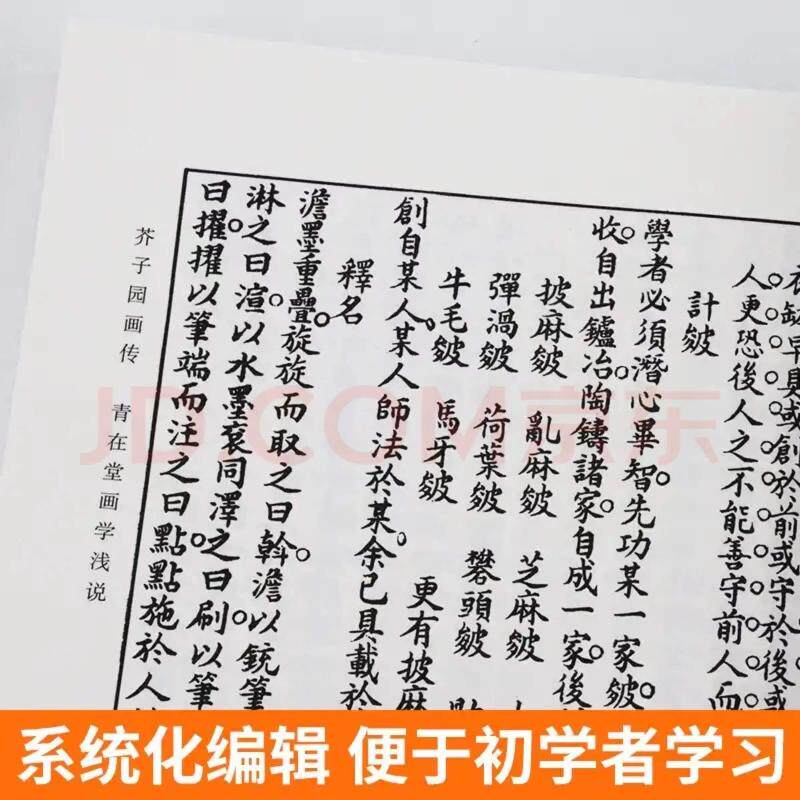 早具。或創於前。或守於後。或
人。更恐後人之不能善守前人而
計皴
學者必須潛心畢智。先功某一家皴。
收。自出鑪冶。陶鑄諸家。自成一家。後
披麻皴 亂麻皴 芝麻皴
彈渦皴 荷葉皴 礬頭皴
牛毛皴 馬牙皴 更有披麻
創自某人。某人師法於某。余已具載於
釋名
澹墨重疊。旋旋而取之曰斡。澹以銳筆
淋之曰渲。以水墨衮同澤之曰刷。以筆
曰擢。擢以筆端而注之曰點。點施於人
芥子园画传 青在堂画学浅说
JD.COM京东
系统化编辑 便于初学者学习